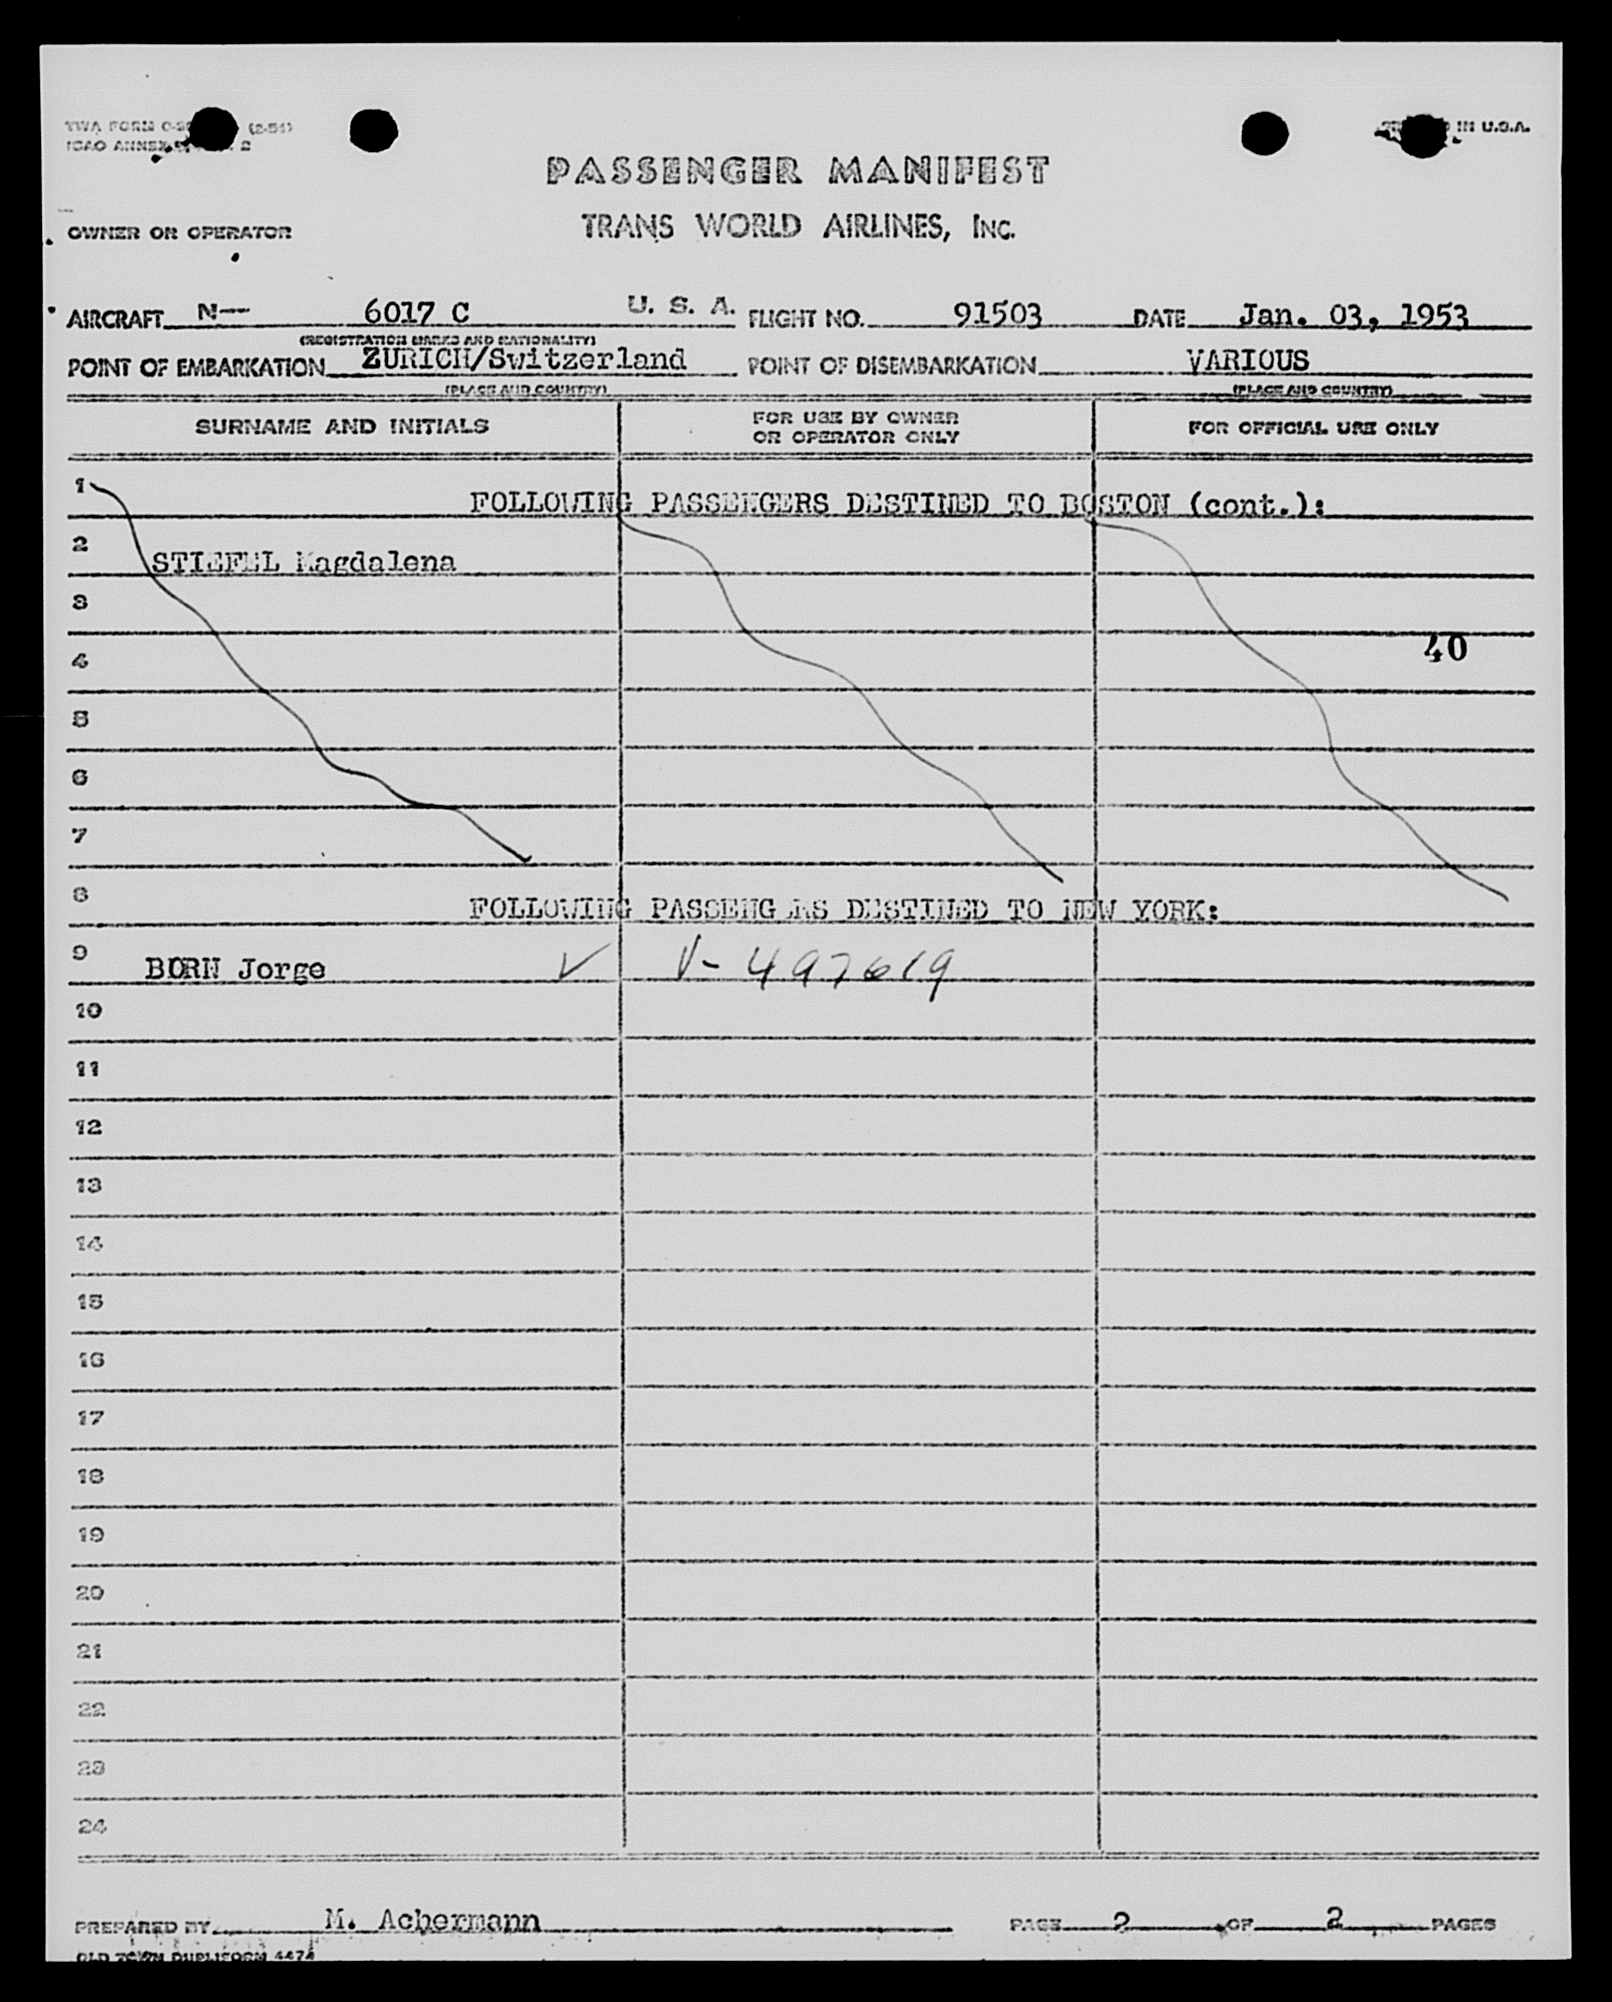 TWA FORM (2-51)
ICAO ANNEX 2
IN U.S.A.
PASSENGER MANIFEST
TRANS WORLD AIRLINES, INC.
OWNER OR OPERATOR
AIRCRAFT N— 6017 C U. S. A. FLIGHT NO. 91503 DATE Jan. 03, 1953
(REGISTRATION MARKS AND NATIONALITY)
POINT OF EMBARKATION ZURICH/Switzerland POINT OF DISEMBARKATION VARIOUS
(PLACE AND COUNTRY) (PLACE AND COUNTRY)
SURNAME AND INITIALS FOR USE BY OWNER OR OPERATOR ONLY FOR OFFICIAL USE ONLY
1 FOLLOWING PASSENGERS DESTINED TO BOSTON (cont.):
2 STIEFEL Magdalena
3
4 40
5
6
7
8 FOLLOWING PASSENGERS DESTINED TO NEW YORK:
9 BORN Jorge ✓ V- 497619
10
11
12
13
14
15
16
17
18
19
20
21
22
23
24
PREPARED BY M. Achermann PAGE 2 OF 2 PAGES
OLD TOWN DUPLIFORM 4474